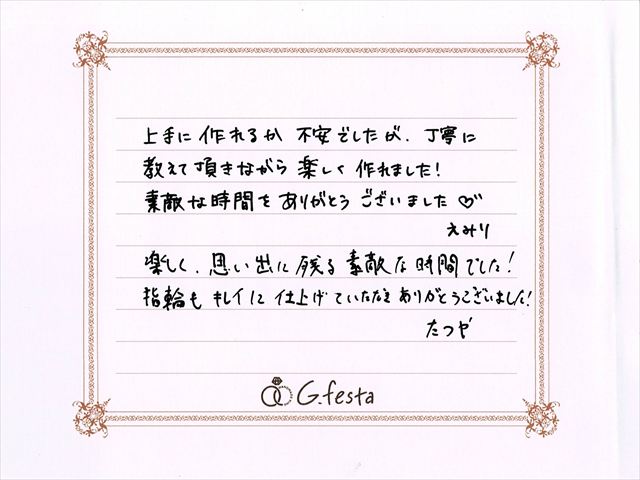 上手に作れるか不安でしたが、丁寧に
教えて頂きながら楽しく作れました!
素敵な時間をありがとうございました♡
えみり
楽しく、思い出に残る素敵な時間でした!
指輪もキレイに仕上げていただきありがとうございました!
たつや
G.festa